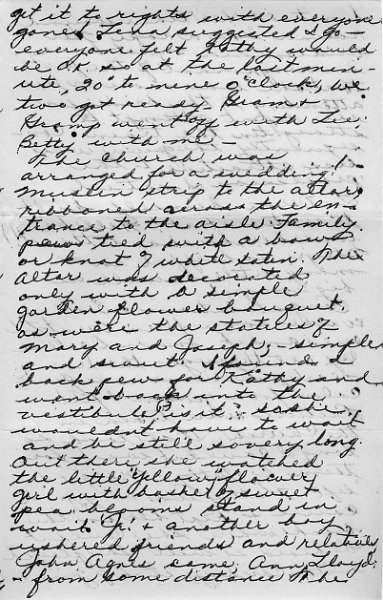 get it to rights with everyone
gone. Lena suggested I go -
everyone felt Kathy would
be O.K. so at the last min-
ute, 20" to nine o'clock, we
two got ready. Gram &
Gramp went off with Lee.
Betty with me -
The Church was
arranged for a wedding!
Muslin strip to the altar,
ribboned across the en-
trance to the aisle. Family
pews tied with a bow
or knot of white satin. The
Altar was decorated
only with a simple
garden flower bouquet.
as were the statues of
Mary and Joseph, - simple
and sweet. I found a
back pew for Kathy and
went back into the
vestibule to sit so she
wouldn't have to wait
and be still so very long.
Out there she watched
the little "yellow" flower
girl with basket of sweet
pea blooms stand in
wait. Jr. & another boy
ushered friends and relatives
John, Agnes came, Ann, Lloyd,
- from some distance. The